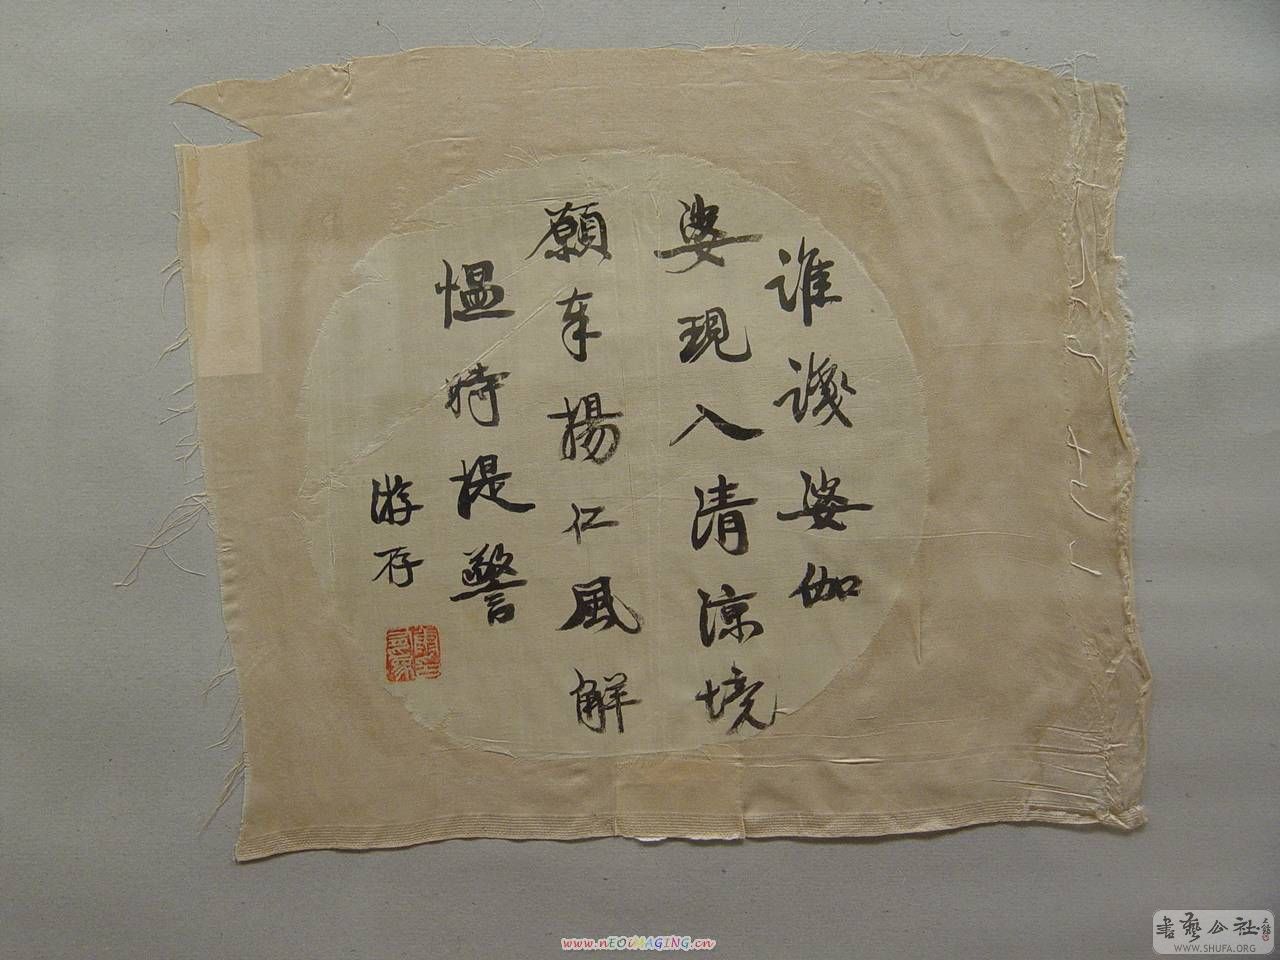 誰识婆伽
婆現入清涼境
願奉揚仁風解
愠時提警
游存
www.nEOiMAGiNG.cn
書藝公社
WWW.SHUFA.ORG